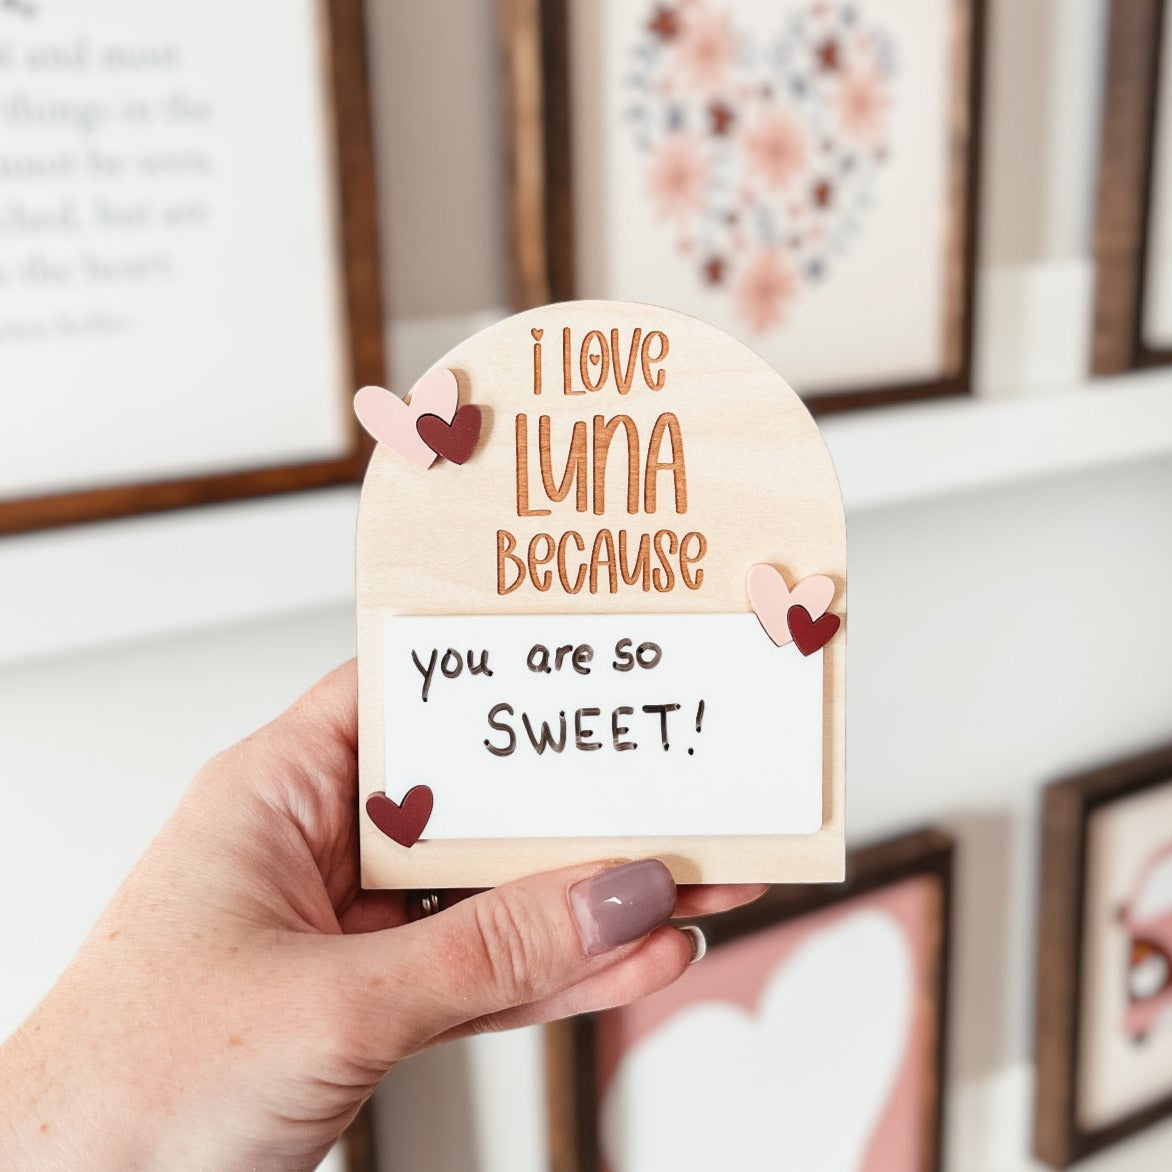 t and most
things in the
nnot be seen,
ched, but are
the heart.
i LOVE
LUNA
BECAUSE
you are so
SWEET!